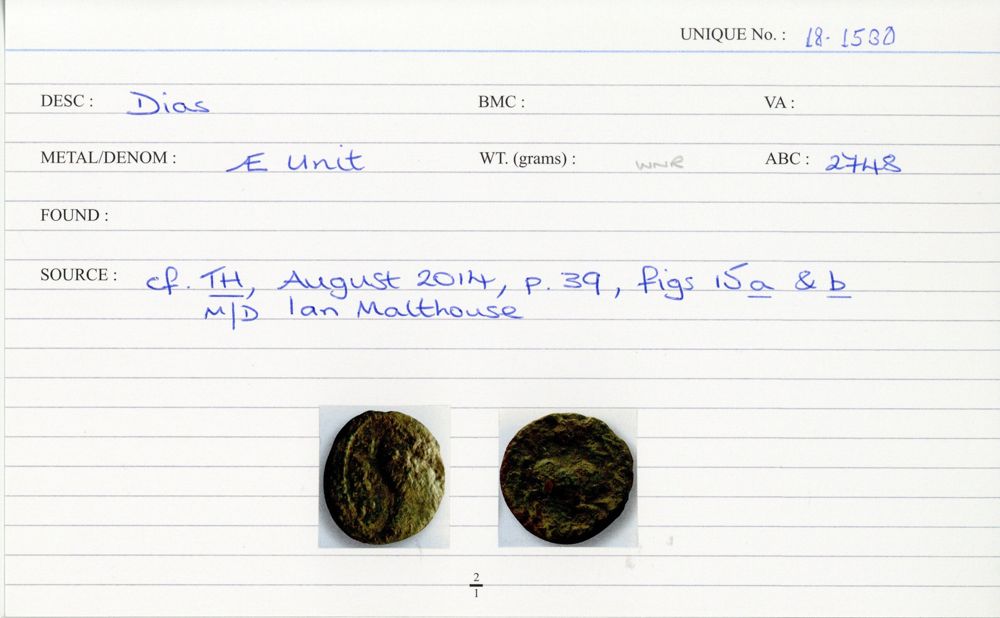 UNIQUE No. : 18-1530
DESC : Dias BMC : VA :
METAL/DENOM : Æ Unit WT. (grams) : WNR ABC : 2748
FOUND :
SOURCE : cf. TH, August 2014, p. 39, figs 15a & b
M/D Ian Malthouse
2
1